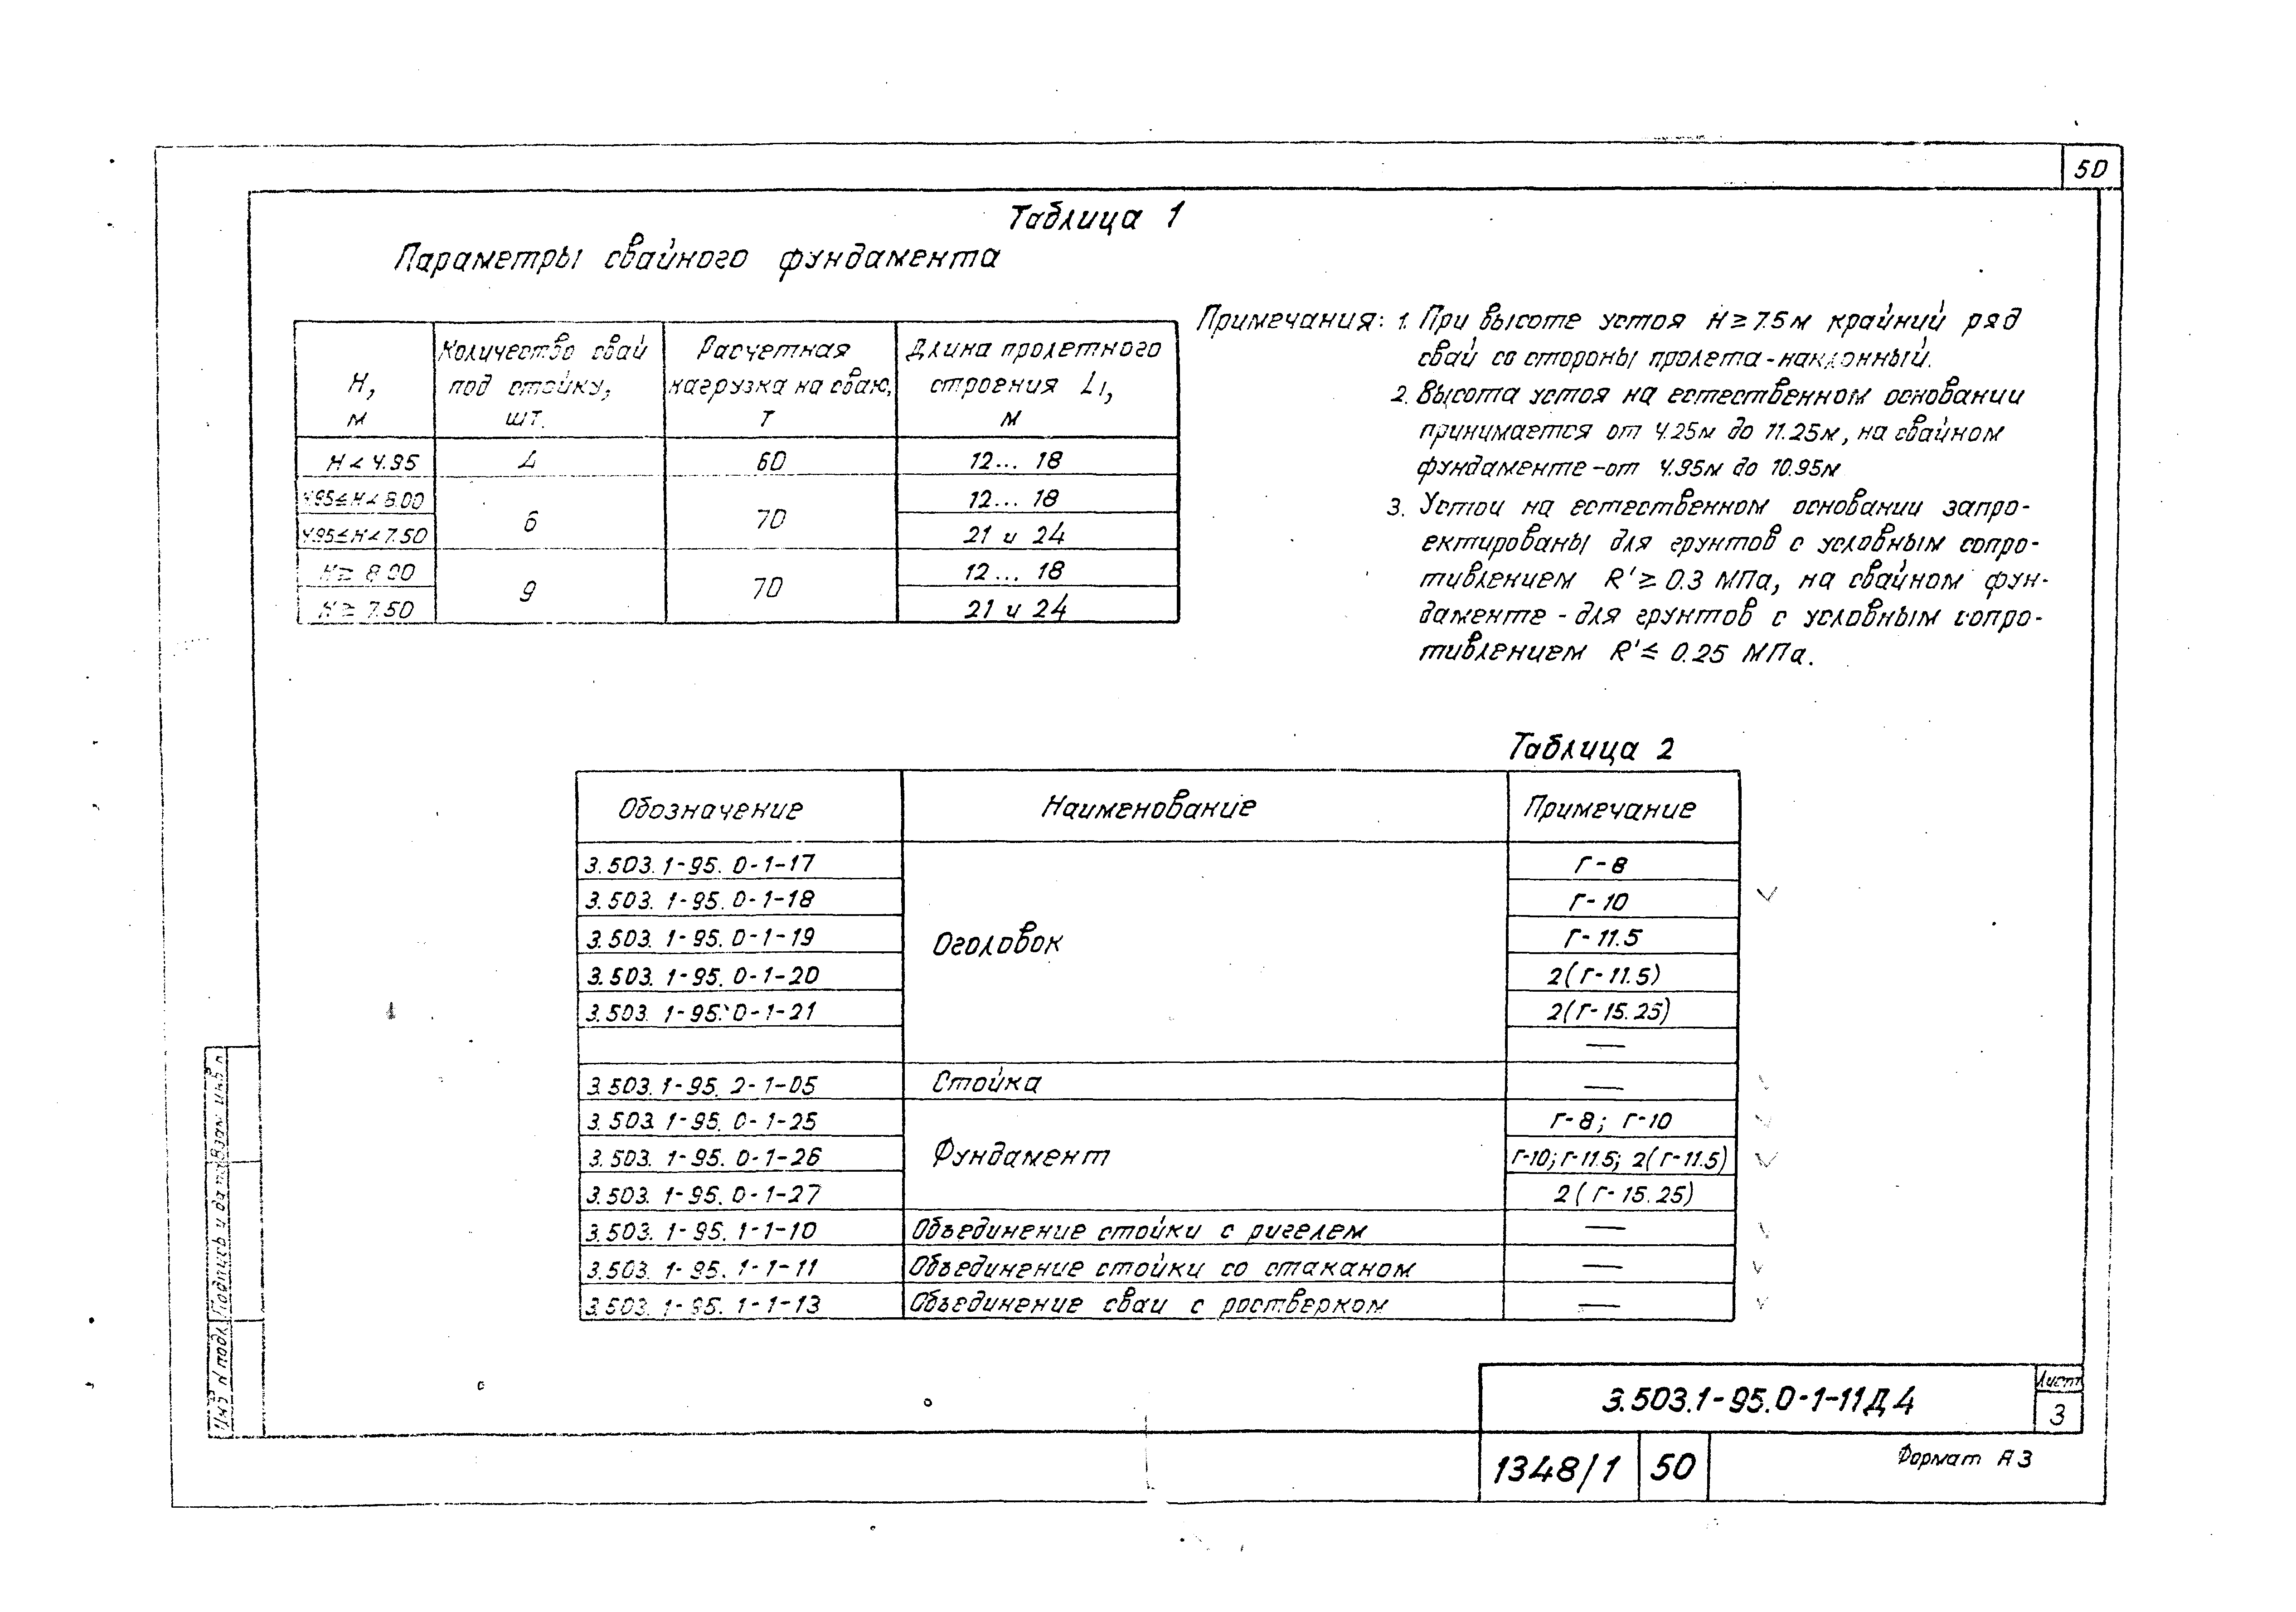 50
Таблица 1
Параметры свайного фундамента
Н, м | Количество свай под стойку, шт. | Расчетная нагрузка на сваю, т | Длина пролетного строения L1, м
Н < 4.95 | 4 | 60 | 12... 18
4.95 ≤ Н < 8.00 | 6 | 70 | 12... 18
4.95 ≤ Н < 7.50 | 21 и 24
Н ≥ 8.00 | 9 | 70 | 12... 18
Н ≥ 7.50 | 21 и 24
Примечания: 1. При высоте устоя Н ≥ 7.5м крайний ряд
свай со стороны пролета - наклонный.
2. Высота устоя на естественном основании
принимается от 4.25м до 11.25м, на свайном
фундаменте - от 4.95м до 10.95м
3. Устои на естественном основании запро-
ектированы для грунтов с условным сопро-
тивлением R' ≥ 0.3 МПа, на свайном фун-
даменте - для грунтов с условным сопро-
тивлением R' ≤ 0.25 МПа.
Таблица 2
Обозначение | Наименование | Примечание
3.503.1-95.0-1-17 | Оголовок | Г-8
3.503.1-95.0-1-18 | Г-10
3.503.1-95.0-1-19 | Г-11.5
3.503.1-95.0-1-20 | 2(Г-11.5)
3.503.1-95.0-1-21 | 2(Г-15.25)
—
3.503.1-95.2-1-05 | Стойка | —
3.503.1-95.0-1-25 | Фундамент | Г-8; Г-10
3.503.1-95.0-1-26 | Г-10; Г-11.5; 2(Г-11.5)
3.503.1-95.0-1-27 | 2(Г-15.25)
3.503.1-95.1-1-10 | Объединение стойки с ригелем | —
3.503.1-95.1-1-11 | Объединение стойки со стаканом | —
3.503.1-95.1-1-13 | Объединение сваи с ростверком | —
Инв N подл. | Подпись и дата | Взам инв N
3.503.1-95.0-1-11Д4
Лист
3
1348/1 | 50
Формат А3